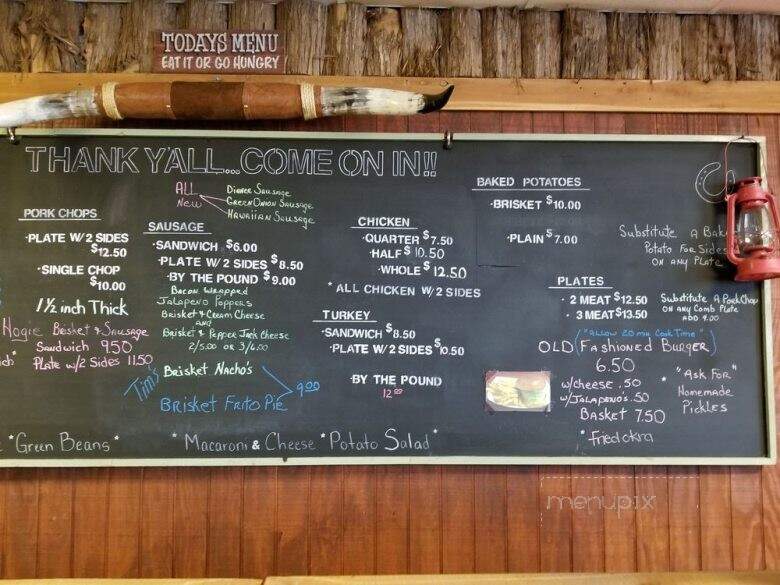 TODAYS MENU
EAT IT OR GO HUNGRY
THANK Y'ALL...COME ON IN!!
ALL
New
Dinner Sausage
Green Onion Sausage
Hawaiian Sausage
PORK CHOPS
·PLATE W/ 2 SIDES
$12.50
·SINGLE CHOP
$10.00
1 1/2 inch Thick
Hogie Brisket & Sausage
Sandwich 9.50
Plate w/2 Sides 11.50
SAUSAGE
·SANDWICH $6.00
·PLATE W/ 2 SIDES $8.50
·BY THE POUND $9.00
Bacon Wrapped
Jalapeno Poppers
Brisket & Cream Cheese
AND
Brisket & Pepper Jack Cheese
2/5.00 or 3/6.00
Tim's
Brisket Nacho's
Brisket Frito Pie
9.00
CHICKEN
·QUARTER $7.50
·HALF $10.50
·WHOLE $12.50
* ALL CHICKEN W/ 2 SIDES
TURKEY
·SANDWICH $8.50
·PLATE W/ 2 SIDES $10.50
·BY THE POUND
12.00
BAKED POTATOES
·BRISKET $10.00
·PLAIN $7.00
Substitute A Bake
Potato For Sides
ON ANY Plate
PLATES
· 2 MEAT $12.50
· 3 MEAT $13.50
Substitute A Pork Chop
ON ANY Comb Plate
ADD 4.00
"Allow 20 mn Cook Time"
OLD FASHIONED BURGER
6.50
w/cheese .50
w/Jalapeno's .50
Basket 7.50
* "Ask For"
Homemade
Pickles
*Green Beans*
*Macaroni & Cheese *Potato Salad*
*Fried okra
menupix